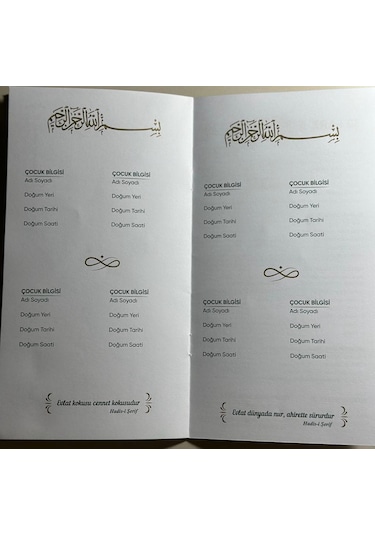 بِسْمِ اللهِ الرَّحْمٰنِ الرَّحِيْمِ
ÇOCUK BİLGİSİ
Adı Soyadı
Doğum Yeri
Doğum Tarihi
Doğum Saati
ÇOCUK BİLGİSİ
Adı Soyadı
Doğum Yeri
Doğum Tarihi
Doğum Saati
ÇOCUK BİLGİSİ
Adı Soyadı
Doğum Yeri
Doğum Tarihi
Doğum Saati
ÇOCUK BİLGİSİ
Adı Soyadı
Doğum Yeri
Doğum Tarihi
Doğum Saati
Evlat kokusu cennet kokusudur
Hadis-i Şerif
بِسْمِ اللهِ الرَّحْمٰنِ الرَّحِيْمِ
ÇOCUK BİLGİSİ
Adı Soyadı
Doğum Yeri
Doğum Tarihi
Doğum Saati
ÇOCUK BİLGİSİ
Adı Soyadı
Doğum Yeri
Doğum Tarihi
Doğum Saati
ÇOCUK BİLGİSİ
Adı Soyadı
Doğum Yeri
Doğum Tarihi
Doğum Saati
ÇOCUK BİLGİSİ
Adı Soyadı
Doğum Yeri
Doğum Tarihi
Doğum Saati
Evlat dünyada nur, ahirette sürurdur
Hadis-i Şerif